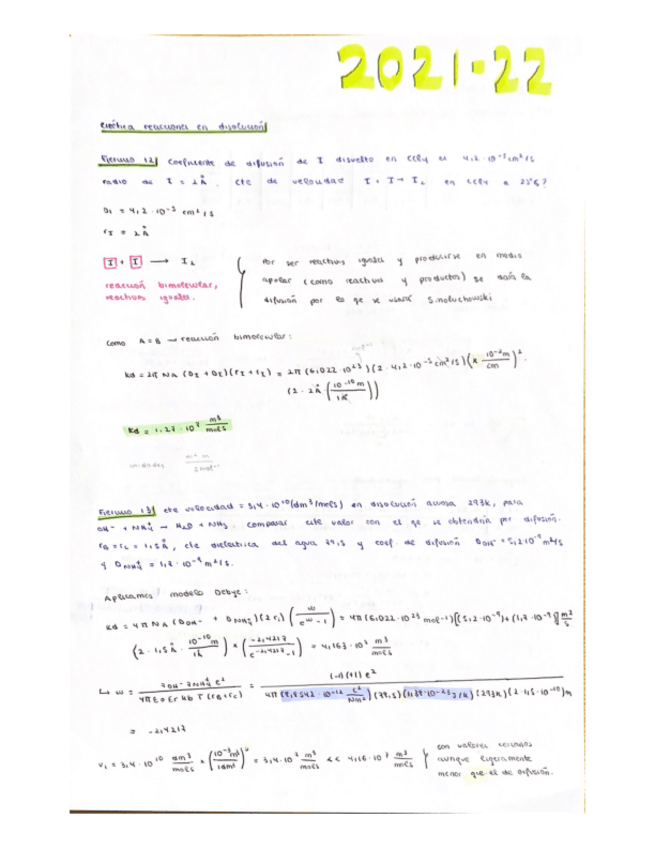 2021-22
Cinética reacciones en disolución
Ejercicio 12) Coeficiente de difusión de I disuelto en CCl4 es 4,2·10⁻⁵ cm²/s
radio de I = 2Å. Cte de velocidad I + I → I₂ en CCl4 a 25ºC?
D_I = 4,2·10⁻⁵ cm²/s
r_I = 2Å
I + I → I₂
reacción bimolecular,
reactivos iguales.
Por ser reactivos iguales y producirse en medio
apolar (como reactivos y productos) se dará la
difusión por lo qe se usará Smoluchowski
Como A=B → reacción bimolecular:
kd = 2π NA (D_I + D_I)(r_I + r_I) = 2π (6,022·10²³)(2·4,2·10⁻⁵ cm²/s)(x 10⁻²m/cm)².
(2·2Å (10⁻¹⁰m/1Å))
kd = 1,27·10⁷ m³/mol s
unidades
Ejercicio 13) cte velocidad = 3,4·10¹⁰(dm³/mol s) en disolución acuosa 293K, para
OH⁻ + NH₄⁺ → H₂O + NH₃. Comparar este valor con el qe se obtendría por difusión.
r_B = r_C = 1,5Å, cte dieléctrica del agua 79,5 y coef. de difusión D_OH⁻ = 5,2·10⁻⁹ m²/s
y D_NH₄⁺ = 1,7·10⁻⁹ m²/s.
Aplicamos modelo Debye:
kd = 4π NA (D_OH⁻ + D_NH₄⁺)(2r_i)(w/(e^w - 1)) = 4π (6,022·10²³ mol⁻¹)[(5,2·10⁻⁹)+(1,7·10⁻⁹)] m²/s
(2·1,5Å·10⁻¹⁰m/1Å) × (-2,4217/(e^-2,4217 - 1)) = 4,163·10⁷ m³/mol s
↳ w = z_OH⁻ z_NH₄⁺ e²/(4π ε₀ εr kb T (r_B + r_C)) = (-1)(+1) e²/(4π (8,8542·10⁻¹² C²/Nm²)(79,5)(1,38·10⁻²³ J/K)(293K)(2·1,5·10⁻¹⁰)m)
= -2,4217
v₁ = 3,4·10¹⁰ dm³/mol s × (10⁻³m³/1dm³) = 3,4·10⁷ m³/mol s << 4,16·10⁷ m³/mol s
son valores cercanos
aunque ligeramente
menor que el de difusión.